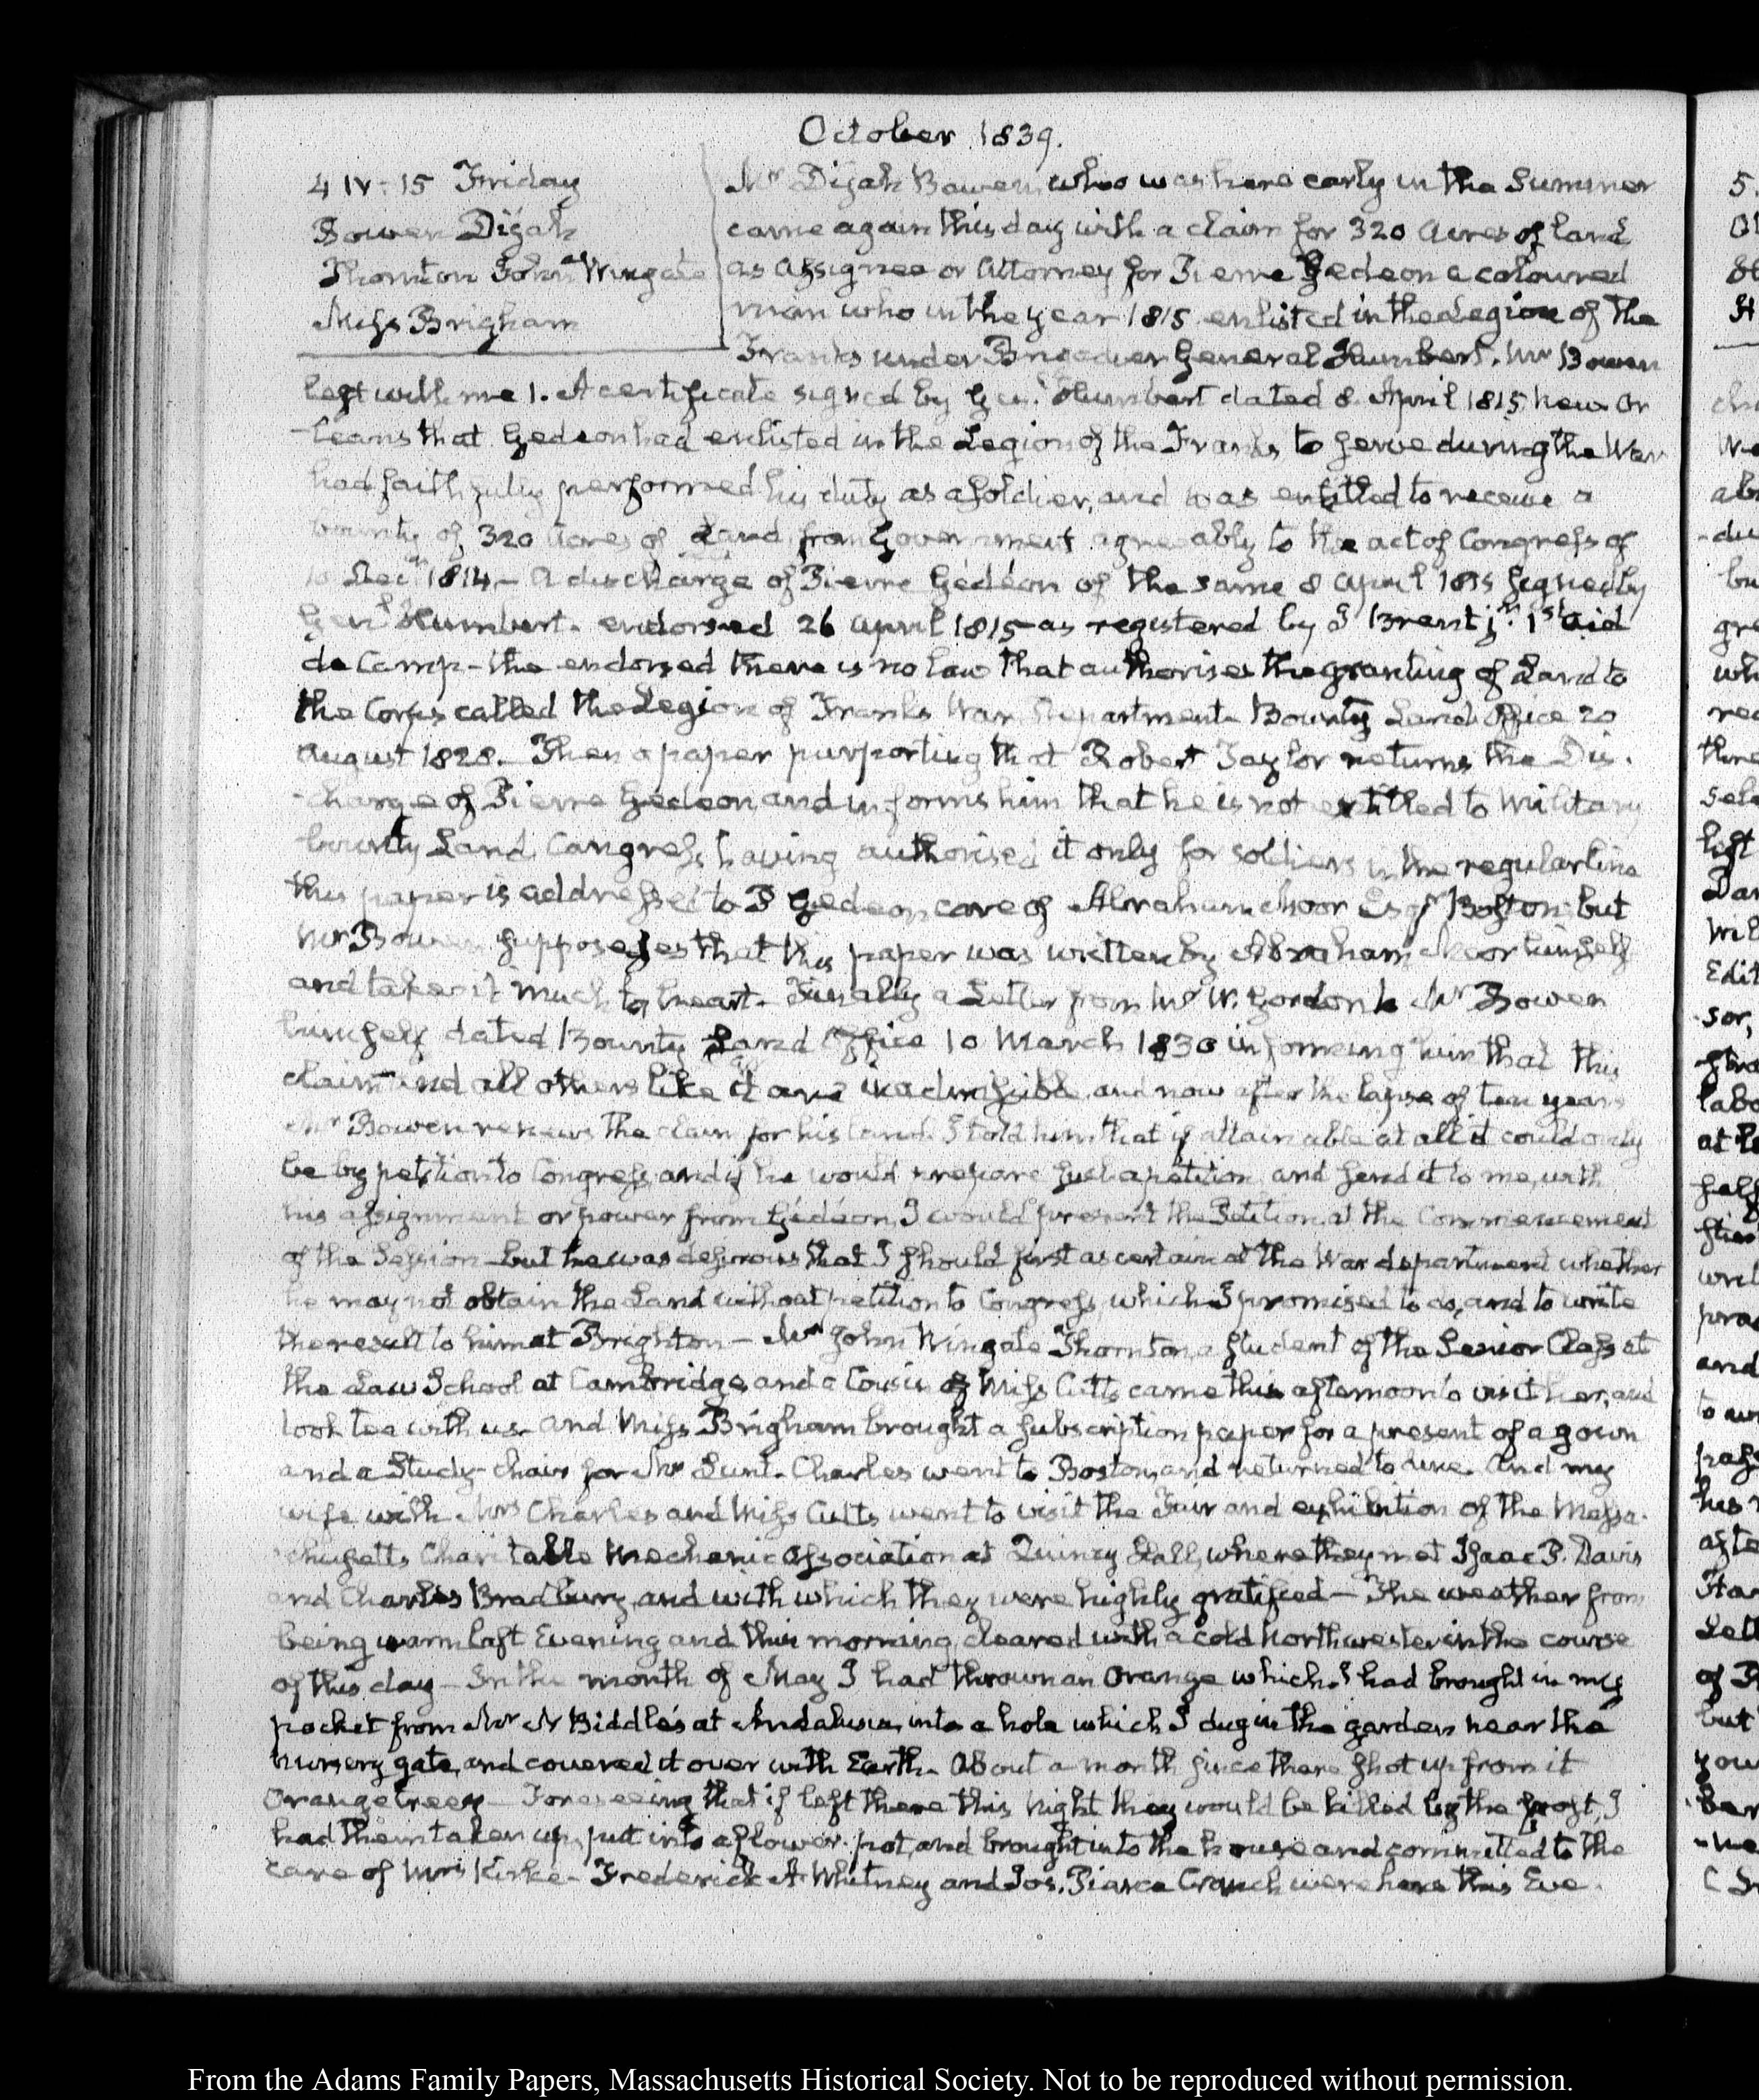 October 1839.
4 IV: 15 Friday
Bowen Dijah
Thornton John Wingate
Miss Brigham
Mr Dijah Bowen, who was here early in the Summer
came again this day with a claim for 320 Acres of land
as Assignee or Attorney for Pierre Gédeon a coloured
man who in the year 1815 enlisted in the Legion of the
Franks under Brigadier General Humbert. Mr Bowen
left with me 1. A certificate signed by Genl. Humbert dated 8 April 1815 New Or
-leans that Gedeon had enlisted in the Legion of the Franks to serve during the War
had faithfully performed his duty as a soldier, and was entitled to receive a
bounty of 320 Acres of Land from Government agreeably to the act of Congress of
10 Decr 1814 — A discharge of Pierre Gédéon of the same 8 April 1815 signed by
Genl Humbert. endorsed 26 April 1815 as registered by J Brent jr. 1st Aid
de Camp — the endorsed there is no law that authorises the granting of Land to
the Corps called the Legion of Franks War Department Bounty Land Office 20
August 1828. Then a paper purporting that Robert Taylor returns the Dis.
-charge of Pierre Gedeon, and informs him that he is not entitled to Military
bounty Land, Congress having authorised it only for soldiers in the regular line
this paper is addressed to P Gedeon care of Abraham Moor Esqr Boston but
Mr Bowen supposes that this paper was written by Abraham Moor himself
and takes it much to heart. Finally a Letter from Mr W. Gordon to Mr Bowen
himself dated Bounty Land Office 10 March 1830 informing him that this
claim and all others like it are inadmissible, and now after the lapse of ten years
Mr Bowen renews the claim for his land. I told him that if attainable at all it could only
be by petition to Congress, and if he would prepare such a petition, and send it to me, with
his assignment or power from Gédéon, I would present the Petition at the Commencement
of the Session — but he was desirous that I should first ascertain at the War department whether
he may not obtain the Land without petition to Congress, which I promised to do, and to write
the result to him at Brighton — Mr John Wingate Thornton, a student of the Senior Class at
the Law School at Cambridge, and a Cousin of Miss Cutts came this afternoon to visit her, and
took tea with us. and Miss Brigham brought a subscription paper for a present of a gown
and a Study-chair for Mr Lunt. Charles went to Boston, and returned to dine. And my
wife with Mrs Charles and Miss Cutts went to visit the Fair and exhibition of the Massa-
-chusetts Charitable Mechanic Association at Quincy Hall, where they met Isaac P. Davis
and Charles Bradbury, and with which they were highly gratified — The weather from
being warm last Evening and this morning, cleared with a cold Northwester in the course
of this day — In the month of May I had thrown an Orange which I had brought in my
pocket from Mr N Biddle's at Andalusia, into a hole which I dug in the garden near the
nursery gate, and covered it over with Earth. About a month since there shot up from it
Orange trees — Foreseeing that if left there this Night they would be killed by the frost, I
had them taken up, put into a flower-pot, and brought into the house and committed to the
care of Mrs Kirke. Frederick A. Whitney and Jos. Pearce Cranch were here this Eve.
From the Adams Family Papers, Massachusetts Historical Society. Not to be reproduced without permission.